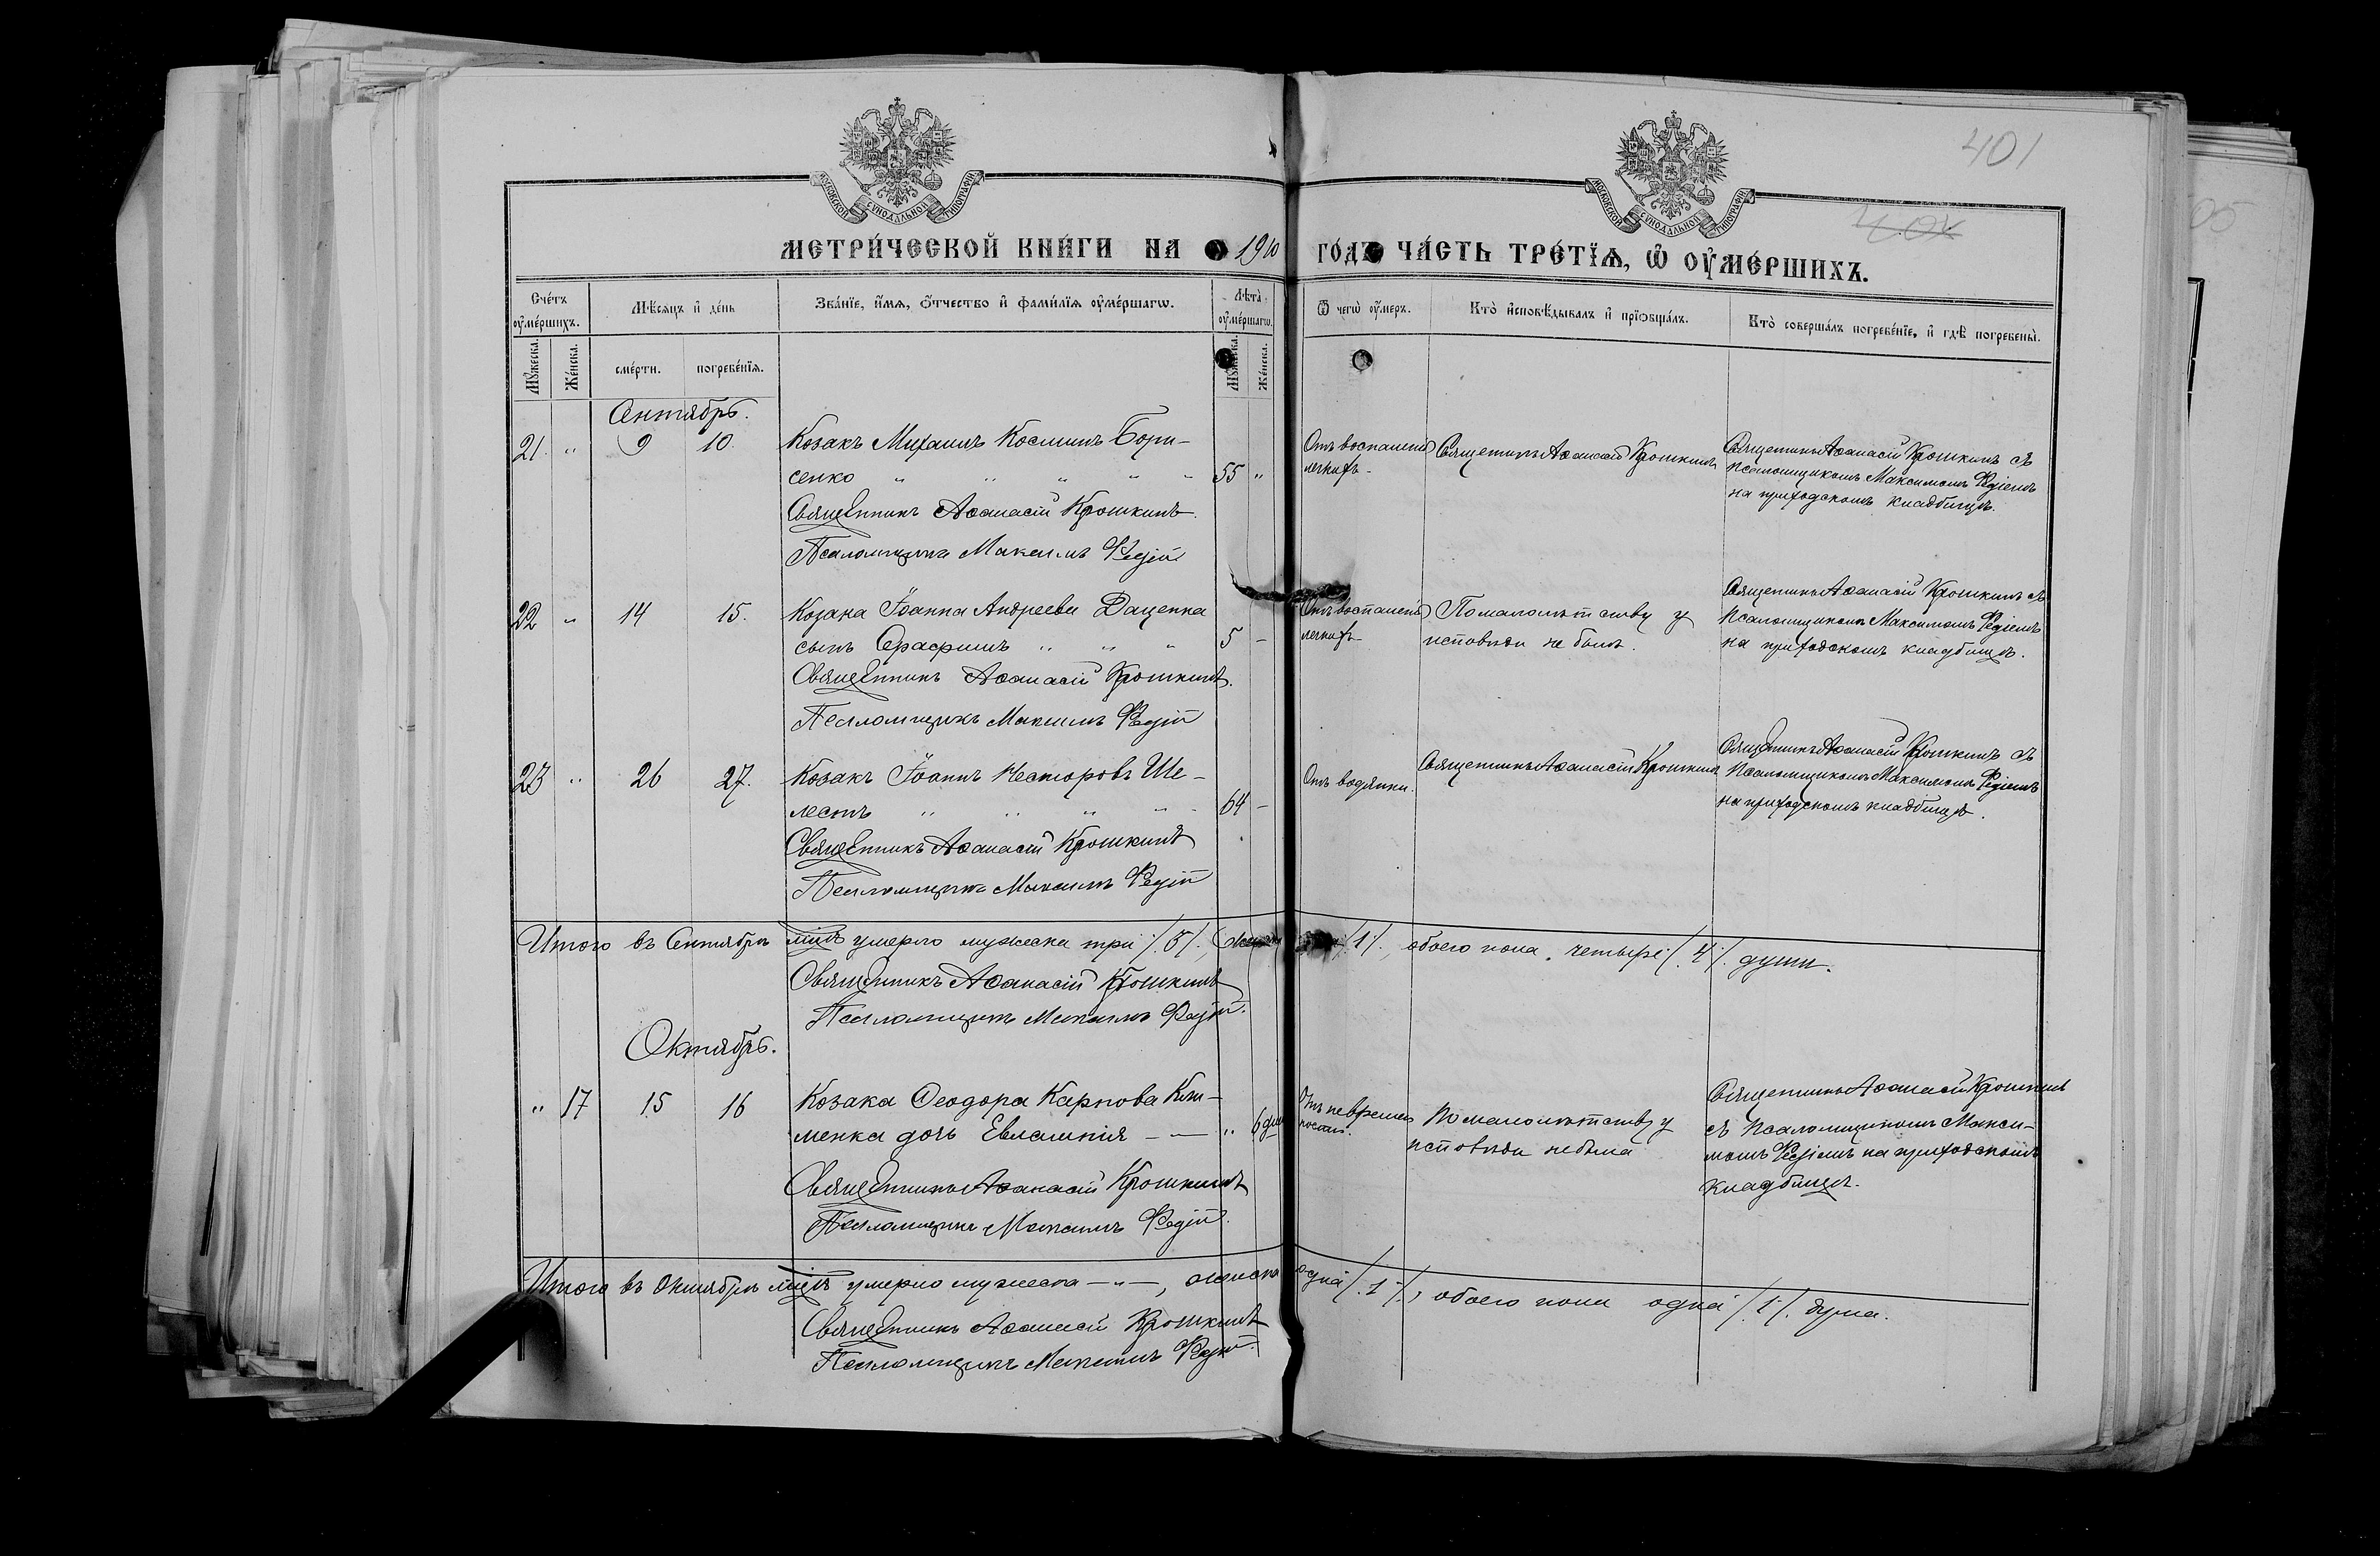 401
МОСКОВСКОЙ СУНОДАЛЬНОЙ ТИПОГРАФІИ
МОСКОВСКОЙ СУНОДАЛЬНОЙ ТИПОГРАФІИ
МЕТРИ́ЧЕСКОЙ КНИ́ГИ НА 1910 ГО́ДЪ ЧА́СТЬ ТРЕ́ТІѦ, Ѡ ОУ҆МЕ́РШИХЪ.
Сче́тъ оу҆ме́ршихъ.
Мѣ́сѧцъ и҆ де́нь
Зва́нїе, и҆́мѧ, ѻ҆́тчество и҆ фами́лїѧ оу҆ме́ршагѡ.
Лѣ́та оу҆ме́ршагѡ.
Ѿ чегѡ̀ оу҆́меръ.
Кто̀ и҆сповѣ́дывалъ и҆ прїѡбща́лъ.
Кто̀ соверша́лъ погребе́нїе, и҆ гдѣ̀ погребены̀.
Мꙋ́жеска. Же́нска.
сме́рти. погребе́нїѧ.
Мꙋ́жеска. Же́нска.
Сентябрь.
21. " 9 10. Козакъ Михаилъ Косминъ Бори-
сенко " " " " " 55 "
Священникъ Аѳанасій Крошкинъ.
Псаломщикъ Максимъ Редій
Отъ воспаленія
легкихъ.
Священникъ Аѳанасій Крошкинъ
Священникъ Аѳанасій Крошкинъ съ
псаломщикомъ Максимомъ Редіемъ
на приходскомъ кладбищѣ.
22 " 14 15. Козака Іоанна Андреева Даценка
сынъ Серафимъ " " " 5 -
Священникъ Аѳанасій Крошкинъ.
Псаломщикъ Максимъ Редій
Отъ воспаленія
легкихъ
По малолѣтству у
исповѣди не былъ.
Священникъ Аѳанасій Крошкинъ съ
Псаломщикомъ Максимомъ Редіемъ
на приходскомъ кладбищѣ.
23 " 26 27. Козакъ Іоаннъ Несторовъ Ше-
лестъ " " " " 64 -
Священникъ Аѳанасій Крошкинъ
Псаломщикъ Максимъ Редій
Отъ водянки.
Священникъ Аѳанасій Крошкинъ
Священникъ Аѳанасій Крошкинъ съ
Псаломщикомъ Максимомъ Редіемъ
на приходскомъ кладбищѣ.
Итого въ Сентябрѣ мцѣ умерло мужеска три /. /., /.1/., обоего пола четыре /.4/. души.
Священникъ Аѳанасій Крошкинъ
Псаломщикъ Максимъ Редій.
Октябрь.
" 17 15 16 Козака Ѳеодора Карпова Кли-
менка дочь Евлампія - - " 6 дн
Священникъ Аѳанасій Крошкинъ
Псаломщикъ Максимъ Редій.
По малолѣтству у
исповѣди не была
Священникъ Аѳанасій Крошкинъ
съ Псаломщикомъ Макси-
момъ Редіемъ на приходскомъ
кладбищѣ.
Итого въ Октябрѣ мцѣ умерло мужеска - " -, женска одна /.1/., обоего пола одна /.1/. душа.
Священникъ Аѳанасій Крошкинъ
Псаломщикъ Максимъ Редій.